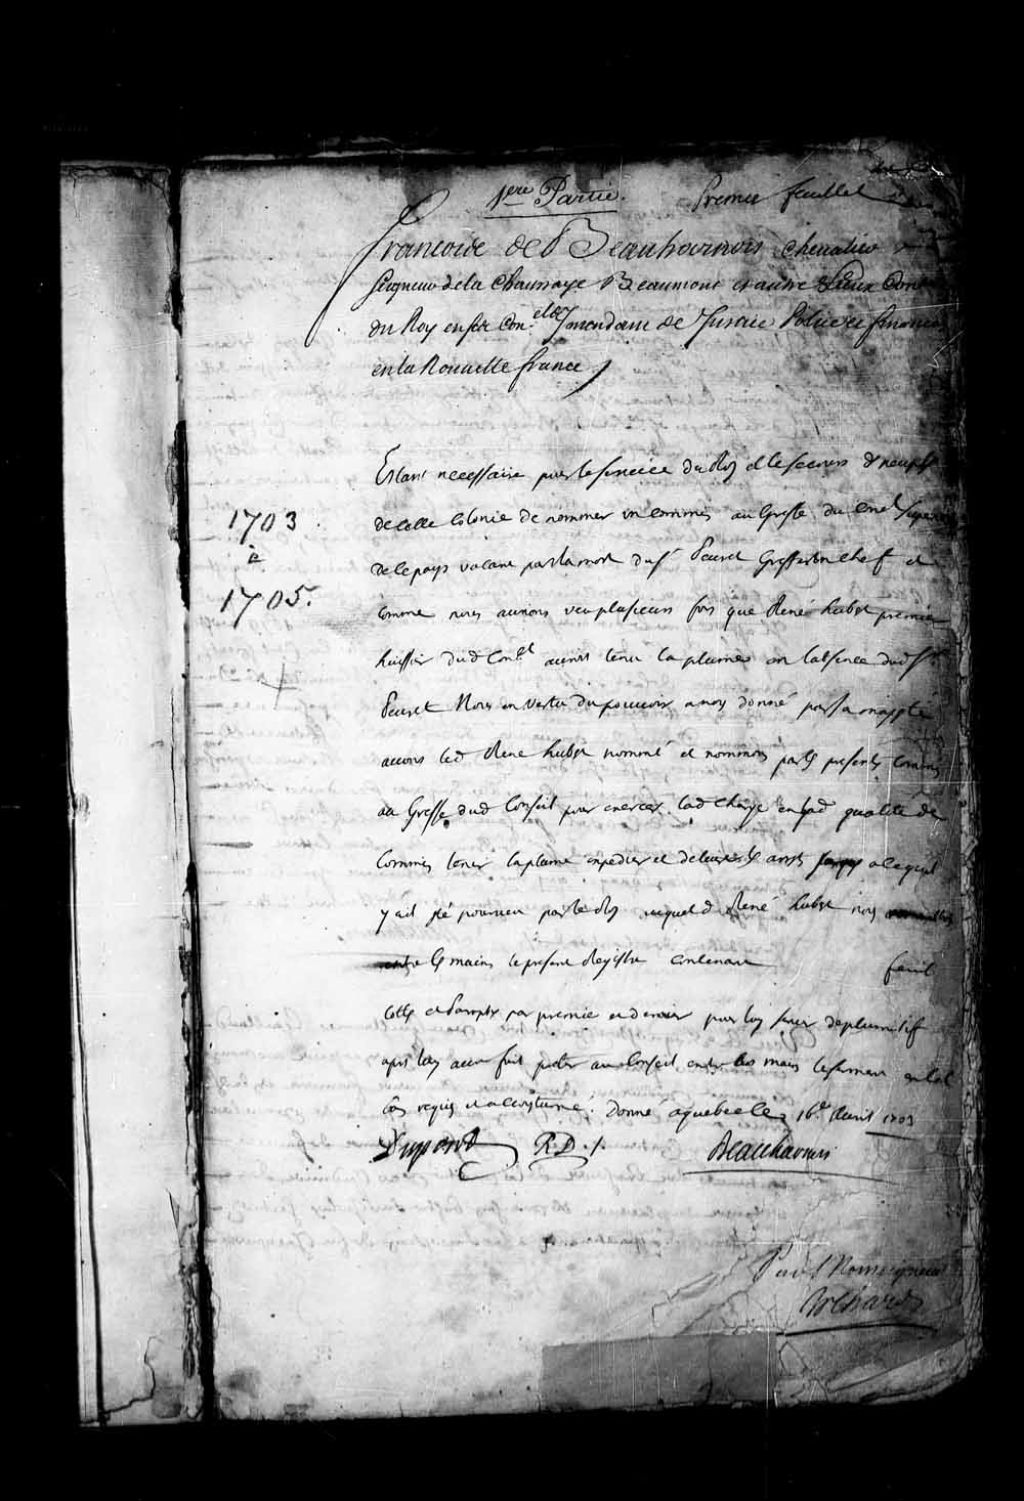 1ere Partie. Premier feuillet
Francois de Beauharnois chevalier
Seigneur de la Chaussaye Beaumont et autre Lieux Con
du Roy en ses Con.els Intendant de Justice Police et finances
en la Nouvelle france
Estant necessaire pour le service du Roy et le secours
1703
de cette Colonie de nommer un Commis au Greffe du Con.el Superieur
a
de ce pays vacant par la mort du s.r Peuret Greffier en chef et
1705.
comme nous aurions veu plusieurs fois que René hubert premier
huissier dud Con.el auroit tenu la plume en l'absence dud s.r
Peuret Nous en vertu du pouvoir a nous donné par sa majesté
avons led René hubert nommé et nommons par les presentes Commis
au Greffe dud Conseil pour exercer lad charge en lad qualité de
Commis tener la plume expedier et delivrer les arrests a ce quil
y ait eté pourveu par le Roy auquel d René hubert nous
entre les mains le present Registre contenant feuil
cotté et paraphé par premier et dernier pour luy servir de plumitif
apres luy avoir fait preter au Conseil entre les mains le serment en tel
cas requis et accoustumé. Donné a quebecq le 16.e Avril 1703
Dupont R.D./. Beauharnois
Par Monseigneur